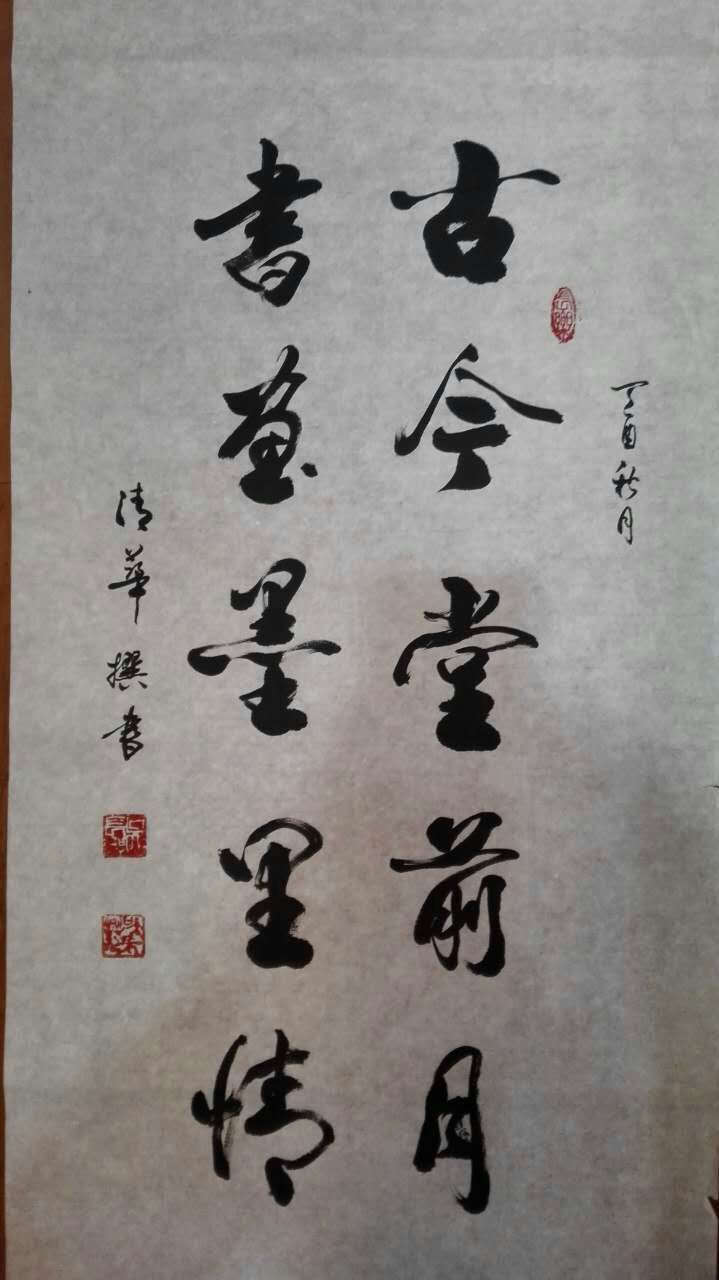 丁酉秋月
古今堂前月
書画墨里情
清華撰書